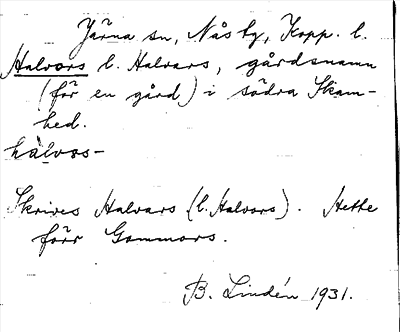 Järna sn, Nås tg, Kopp. l.
Halvars l. Halvars, gårdsnamn
(för en gård) i södra Skam-
hed.
hàlvas-
Skrives Halvars (l. Halvors). Hette
förr Gammors.
B. Lindén 1931.